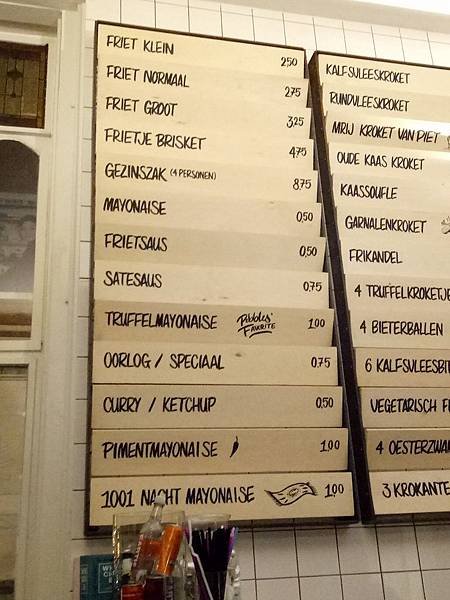 FRIET KLEIN 2,50
FRIET NORMAAL 2,75
FRIET GROOT 3,25
FRIETJE BRISKET 4,75
GEZINSZAK (4 PERSONEN) 8,75
MAYONAISE 0,50
FRIETSAUS 0,50
SATESAUS 0,75
TRUFFELMAYONAISE Pibbles' FAVORITE 1,00
OORLOG / SPECIAAL 0,75
CURRY / KETCHUP 0,50
PIMENTMAYONAISE 1,00
1001 NACHT MAYONAISE 1,00
KALFSVLEESKROKET
RUNDVLEESKROKET
MRIJ KROKET VAN PIET
OUDE KAAS KROKET
KAASSOUFLE
GARNALENKROKET
FRIKANDEL
4 TRUFFELKROKETJE
4 BIETERBALLEN
6 KALFSVLEESBIT
VEGETARISCH F
4 OESTERZWAM
3 KROKANTE